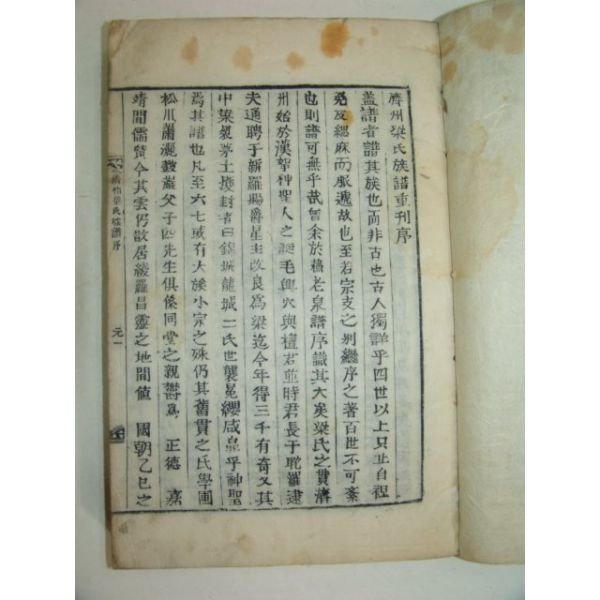 濟州梁氏族譜重刊序
盖譜者譜其族也而非古也古人獨詳乎四世以上只止自袒
免及緦麻而服遞故也至若宗支之別繼序之著百世不可紊
也則譜可無乎哉曾余於穡老泉譜序識其大矣梁氏之貫濟
州始於漢拏神聖人之 毛興穴與檀君並時君長于耽羅逮
夫通聘于新羅賜爵星主改良為梁迄今年得三千有奇又其
中葉裂茅土擾封者曰錦城龍城二氏世襲冕纓咸皐乎神聖
焉其譜也凡至六七或有大族小宗之殊仍其舊貫之氏學圃
松川蕭灑鼓巖父子四先生俱係同堂之親鬱爲 正德 嘉
靖間儒賢今其雲仍散居綾羅昌靈之地間値 國朝乙巳之
濟州梁氏族譜序
元一